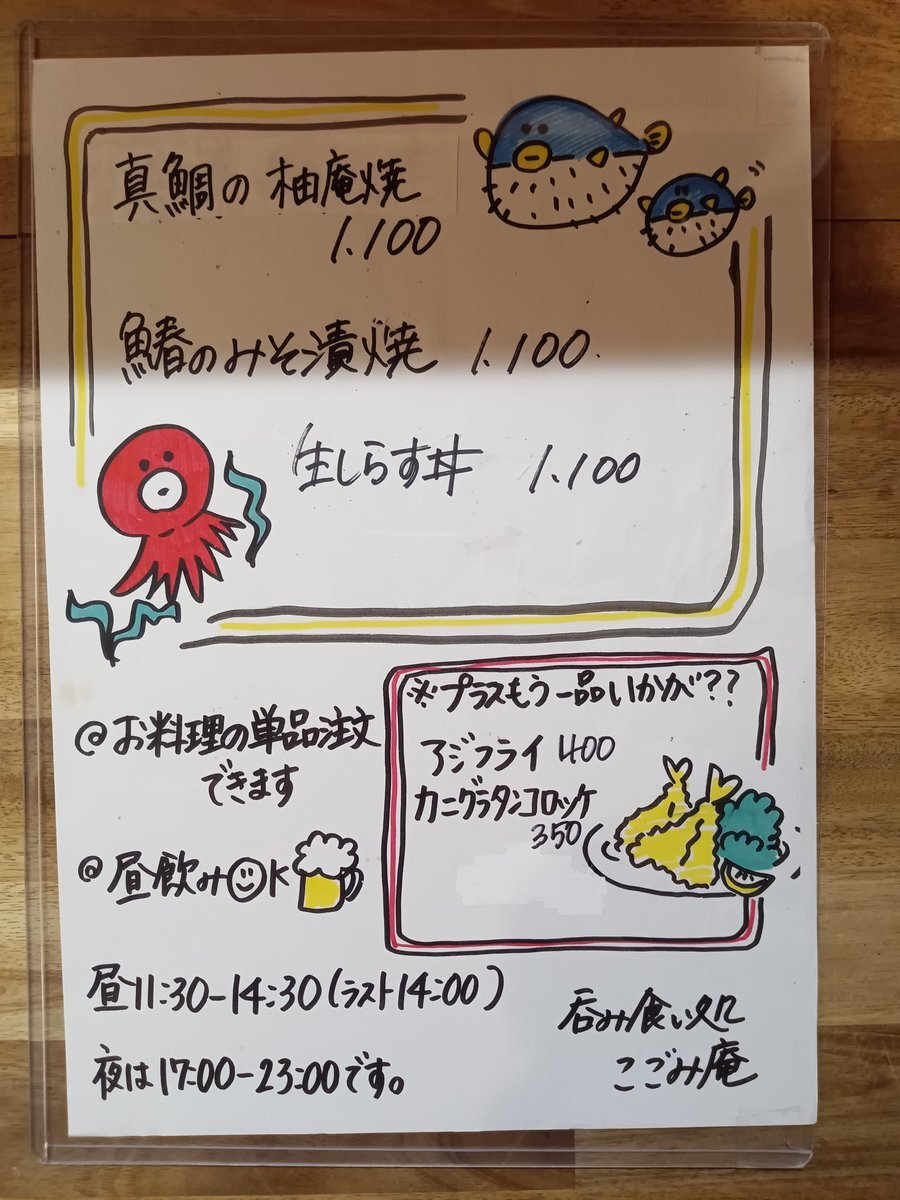 真鯛の柚庵焼
1.100
鰆のみそ漬焼 1.100
生しらす丼 1.100
@お料理の単品注文
できます
@昼飲み☺K
※プラスもう一品いかが??
アジフライ 400
カニグラタンコロッケ
350
昼11:30-14:30(ラスト14:00)
夜は17:00-23:00です。
呑み食い処
こごみ庵